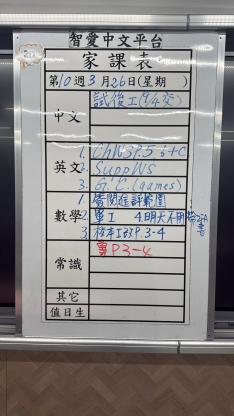 智愛中文平台
家課表
第10週3月26日(星期 )
中文
試後工(9/4交)
英文
1. Ch N3 P.5 b+c
2. Supp NS
3. G.C. (games)
數學
1. 看閱進評範圍
2. 單工 4.明天不用帶
3. 校本工 P.3-4
常識
P3-4
其它
值日生